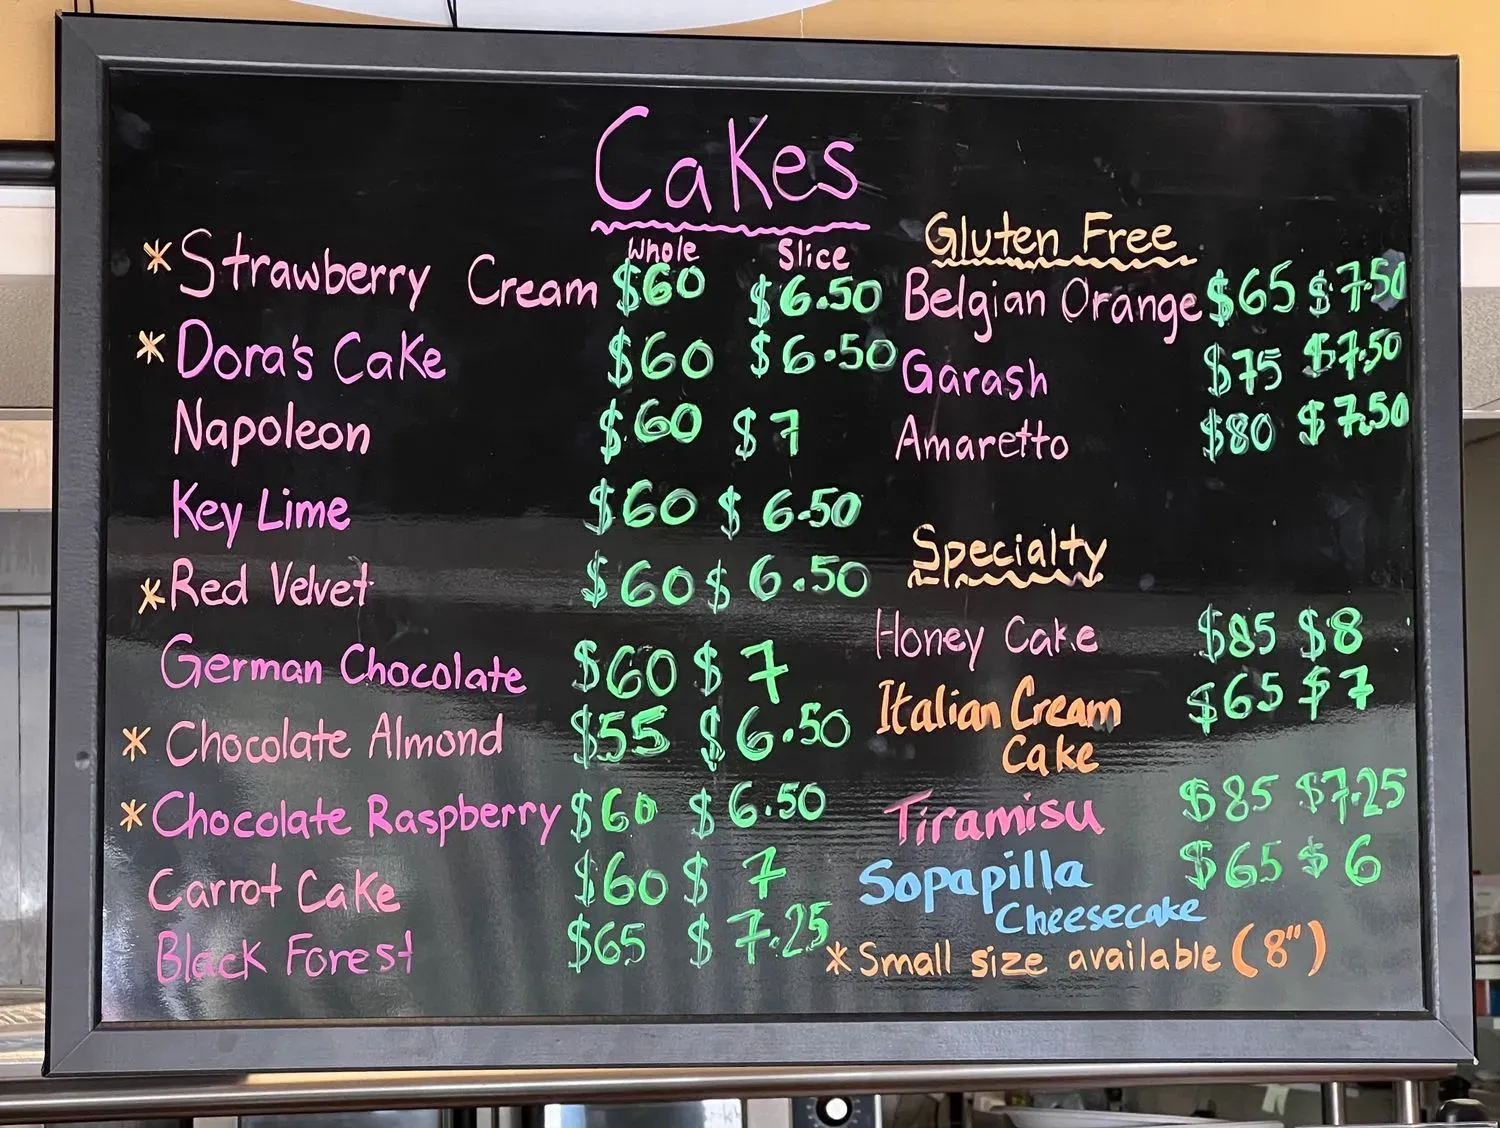 Cakes
Whole Slice
*Strawberry Cream $60 $6.50
*Dora's Cake $60 $6.50
Napoleon $60 $7
Key Lime $60 $6.50
*Red Velvet $60 $6.50
German Chocolate $60 $7
*Chocolate Almond $55 $6.50
*Chocolate Raspberry $60 $6.50
Carrot Cake $60 $7
Black Forest $65 $7.25
Gluten Free
Belgian Orange $65 $7.50
Garash $75 $7.50
Amaretto $80 $7.50
Specialty
Honey Cake $85 $8
Italian Cream $65 $7
Cake
Tiramisu $85 $7.25
Sopapilla $65 $6
Cheesecake
*Small size available (8")